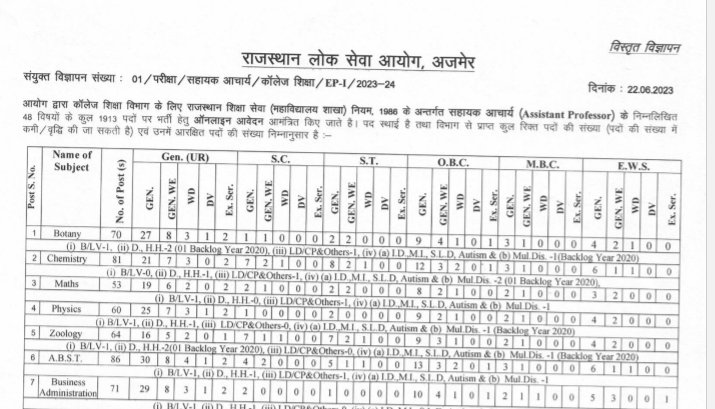 विस्तृत विज्ञापन
राजस्थान लोक सेवा आयोग, अजमेर
संयुक्त विज्ञापन संख्या : 01/परीक्षा/सहायक आचार्य/कॉलेज शिक्षा/EP-I/2023-24
दिनांक : 22.06.2023
आयोग द्वारा कॉलेज शिक्षा विभाग के लिए राजस्थान शिक्षा सेवा (महाविद्यालय शाखा) नियम, 1986 के अन्तर्गत सहायक आचार्य (Assistant Professor) के निम्नलिखित
48 विषयों के कुल 1913 पदों पर भर्ती हेतु ऑनलाइन आवेदन आमंत्रित किए जाते है। पद स्थाई है तथा विभाग से प्राप्त कुल रिक्त पदों की संख्या (पदों की संख्या में
कमी/वृद्धि की जा सकती है) एवं उनमें आरक्षित पदों की संख्या निम्नानुसार है :–
Post S. No. Name of Subject No. of Post (s) Gen. (UR) S.C. S.T. O.B.C. M.B.C. E.W.S.
GEN. GEN. WE WD DV Ex. Ser. GEN. GEN. WE WD DV Ex. Ser. GEN. GEN. WE WD DV Ex. Ser. GEN. GEN. WE WD DV Ex. Ser. GEN. GEN. WE WD DV Ex. Ser. GEN. GEN. WE WD DV Ex. Ser.
1 Botany 70 27 8 3 1 2 1 1 0 0 0 2 2 0 0 0 9 4 1 0 1 3 1 0 0 0 4 2 1 0 0
(i) B/LV-1, (ii) D., H.H.-2 (01 Backlog Year 2020), (iii) LD/CP&Others-1, (iv) (a) I.D.,M.I., S.L.D, Autism & (b) Mul.Dis. -1(Backlog Year 2020)
2 Chemistry 81 21 7 3 0 2 7 2 1 0 0 8 2 1 0 0 12 3 2 0 1 3 1 0 0 0 6 1 1 0 0
(i) B/LV-0, (ii) D., H.H.-1, (iii) LD/CP&Others-1, (iv) (a) I.D.,M.I., S.L.D, Autism & (b) Mul.Dis. -2 (01 Backlog Year 2020),
3 Maths 53 19 6 2 0 2 2 1 0 0 0 2 2 0 0 0 8 2 1 0 1 2 1 0 0 0 3 2 0 0 0
(i) B/LV-1, (ii) D., H.H.-0, (iii) LD/CP&Others-1, (iv) (a) I.D.,M.I., S.L.D, Autism & (b) Mul.Dis. -1
4 Physics 60 25 7 3 1 2 1 0 0 0 0 2 2 0 0 0 9 2 1 0 1 2 1 0 0 0 4 2 0 0 0
(i) B/LV-1, (ii) D., H.H.-1, (iii) LD/CP&Others-1, (iv) (a) I.D.,M.I., S.L.D, Autism & (b) Mul.Dis. -1 (Backlog Year 2020)
5 Zoology 64 16 5 2 0 1 7 1 1 0 0 7 2 1 0 0 9 3 1 0 1 2 1 0 0 0 4 2 0 0 0
(i) B/LV-1, (ii) D., H.H.-2(01 Backlog Year 2020), (iii) LD/CP&Others-0, (iv) (a) I.D.,M.I., S.L.D, Autism & (b) Mul.Dis. -1 (Backlog Year 2020)
6 A.B.S.T. 86 30 8 4 1 2 4 2 0 0 0 5 1 1 0 0 13 3 2 0 1 3 1 0 0 0 6 1 1 0 0
(i) B/LV-1, (ii) D., H.H.-1, (iii) LD/CP&Others-1, (iv) (a) I.D.,M.I., S.L.D, Autism & (b) Mul.Dis. -1
7 Business Administration 71 29 8 3 1 2 2 0 0 0 0 1 0 0 0 0 10 4 1 0 1 2 1 1 0 0 5 3 0 0 1